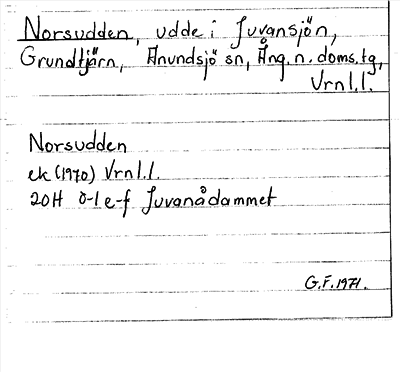 Norsudden, udde i Juvansjön,
Grundtjärn, Anundsjö sn, Ång. n. doms. tg,
Vrnl.l.
Norsudden
ek (1970) Vrnl.l.
20H 0-1 e-f Juvanådammet
G.F. 1971.